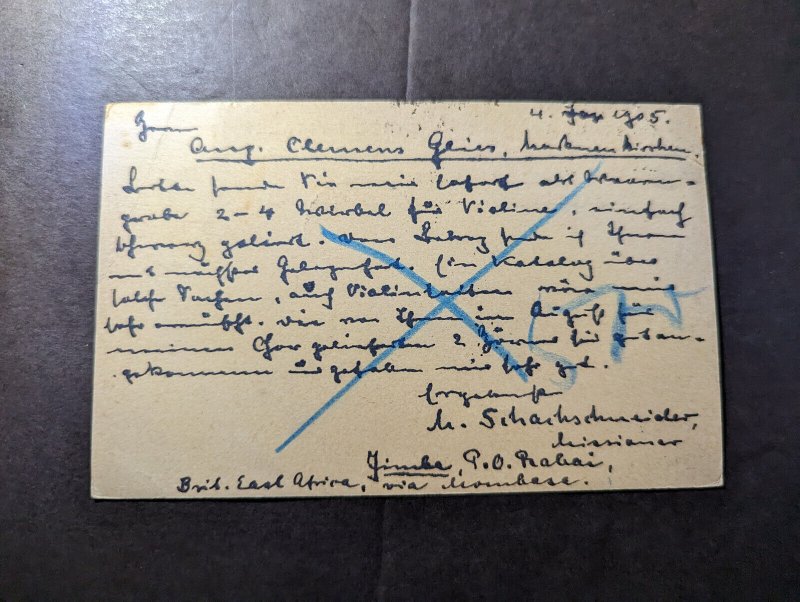 4. Jan 1905.
Herrn
Aug. Clemens Glier, Markneukirchen.
Bitte senden Sie mir sofort als Waaren-
probe 2-4 Wirbel für Violine, einfach
schwarz poliert. Den Betrag sende ich Ihnen
mit nächster Gelegenheit. Ein Katalog über
solche Sachen, auch Violinsaiten wäre mir
sehr erwünscht. Die von Ihnen im August für
meinen Chor gelieferten 2 Hörner sind gut an-
gekommen und gefallen mir sehr gut.
Ergebenst
M. Schachschneider,
Missionar
Jimba, P.O. Rabai,
Brit. East Africa, via Mombasa.